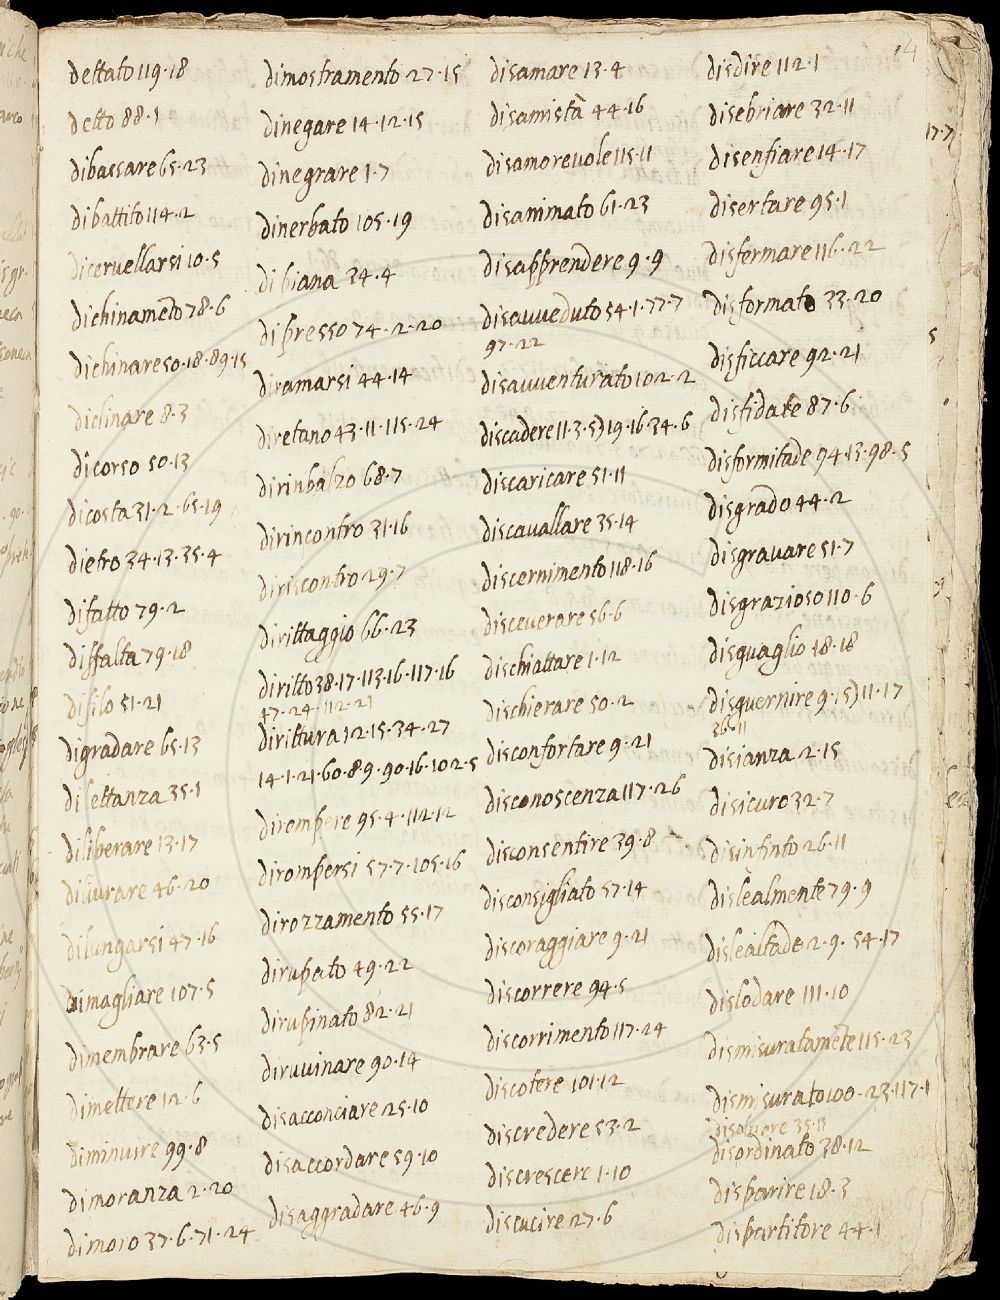 4
dettato 119·18
detto 88·1
dibassare 65·23
dibattito 114·2
dicervellarsi 10·5
dichinamẽto 78·6
dichinare 50·18·89·15
diclinare 8·3
dicorso 50·13
dicosta 31·2·65·19
dietro 34·13·35·4
difatto 79·2
diffalta 79·18
difilo 51·21
digradare 65·13
dilettanza 35·1
diliberare 13·17
dilungarsi 47·16
dimagliare 107·5
dimembrare 63·5
dimettere 12·6
diminuire 99·8
dimoranza 2·20
dimoro 37·6·71·24
dimostramento 27·15
dinegare 14·12·15
dinegrare 1·7
dinerbato 105·19
di piana 34·4
di presso 74·2·20
diramarsi 44·14
diretano 43·11·115·24
dirinbalzo 68·7
dirincontro 31·16
diriscontro 29·7
dirittaggio 66·23
diritto 38·17·113·16·117·16
47·24·112·21
dirittura 12·15·34·27
14·1·21·60·8·9·90·16·102·5
dirompere 95·4·112·12
dirompersi 57·7·105·16
dirozzamento 55·17
dirupato 49·22
dirupinato 82·21
diruvinare 90·14
disacconciare 25·10
disaccordare 59·10
disaggradare 46·9
disamare 13·4
disamistà 44·16
disamorevole 115·11
disanimato 61·23
disapprendere 9·9
disavveduto 54·1·77·7
97·22
disavventurato 102·2
discadere 11·3·5) 19·16·34·6
discaricare 51·11
discavallare 35·14
discernimento 118·16
disceverare 56·6
dischiattare 1·12
dischierare 50·2
disconfortare 9·21
disconoscenza 117·26
disconsentire 39·8
disconsigliato 57·14
discoraggiare 9·21
discorrere 94·5
discorrimento 117·24
discotere 101·12
discredere 53·2
discrescere 1·10
discucire 27·6
disdire 112·1
disebriare 32·11
disenfiare 14·17
disertare 95·1
disfermare 116·22
disformato 33·20
disficcare 92·21
disfidate 87·6
disformitade 94·13·98·5
disgrado 44·2
disgravare 51·7
disgrazioso 110·6
disguaglio 18·18
disguernire 9·15) 11·17
36·11
disianza 2·15
disicuro 32·7
disinfinto 26·11
dislealmente 79·9
dislealtade 2·9·54·17
dislodare 111·10
dismisuratamẽte 115·23
dismisurato 100·23·117·1
disolvere 35·11
disordinato 38·12
disparire 18·3
dispartitore 44·1